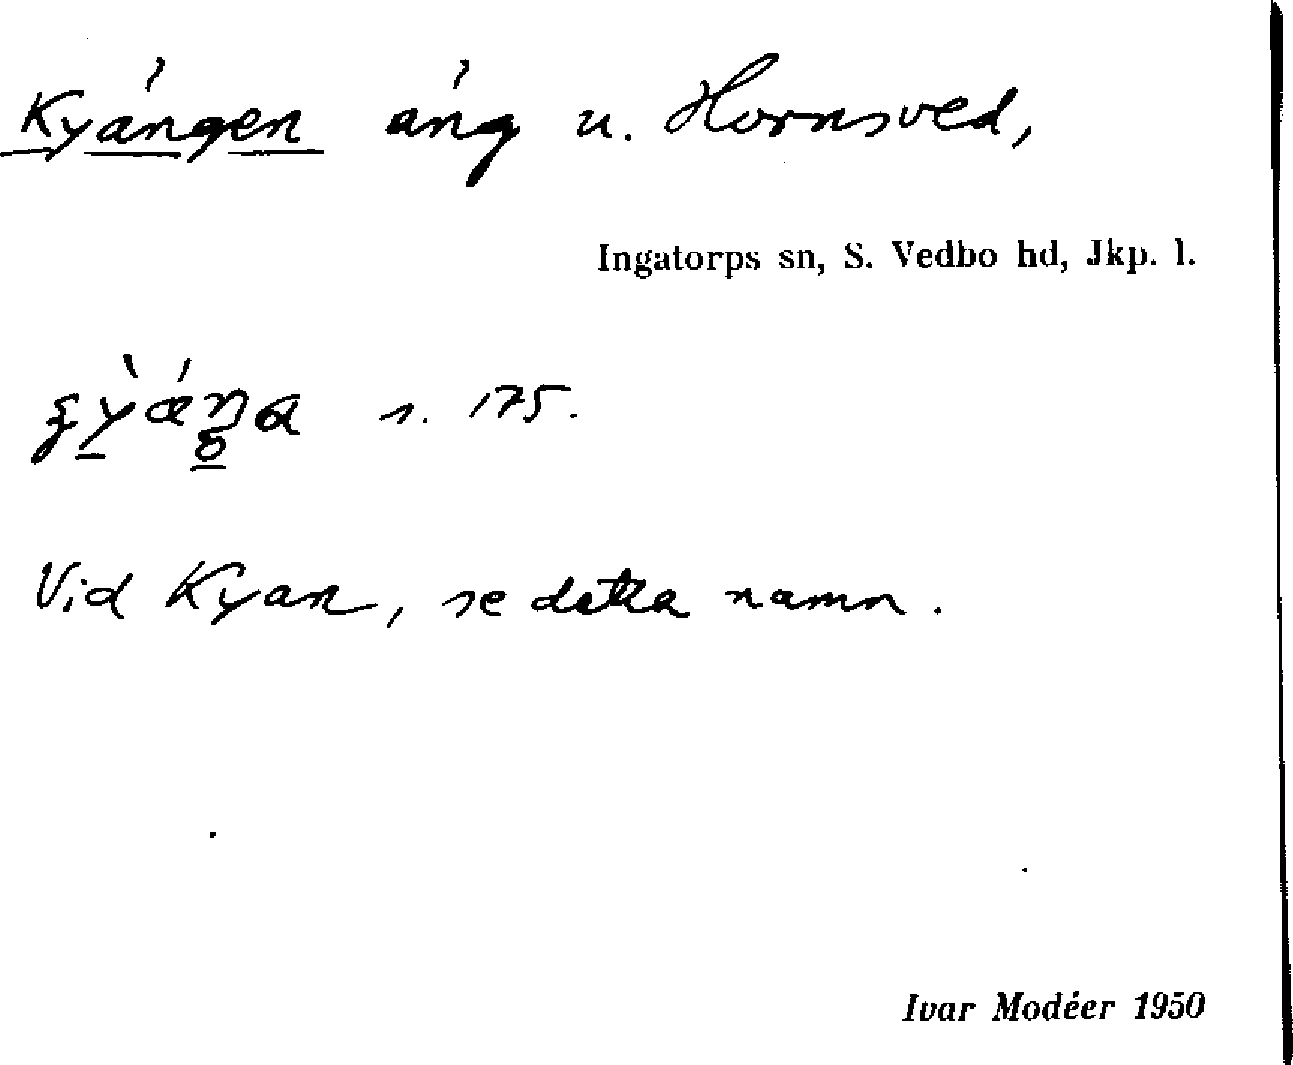 Kyängen äng u. Hornsved,
Ingatorps sn, S. Vedbo hd, Jkp. l.
s. 175.
Vid Kyan, se detta namn.
Ivar Modéer 1950